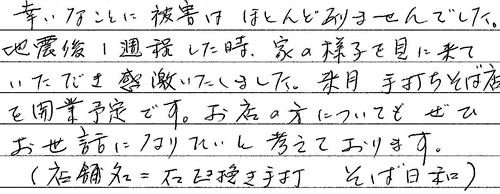 幸いなことに被害はほとんどありませんでした。
地震後1週程した時、家の様子を見に来て
いただき感激いたしました。来月 手打ちそば店
を開業予定です。お店の方についても ぜひ
お世話になりたいと考えております。
(店舗名=石臼挽き手打 そば日和)